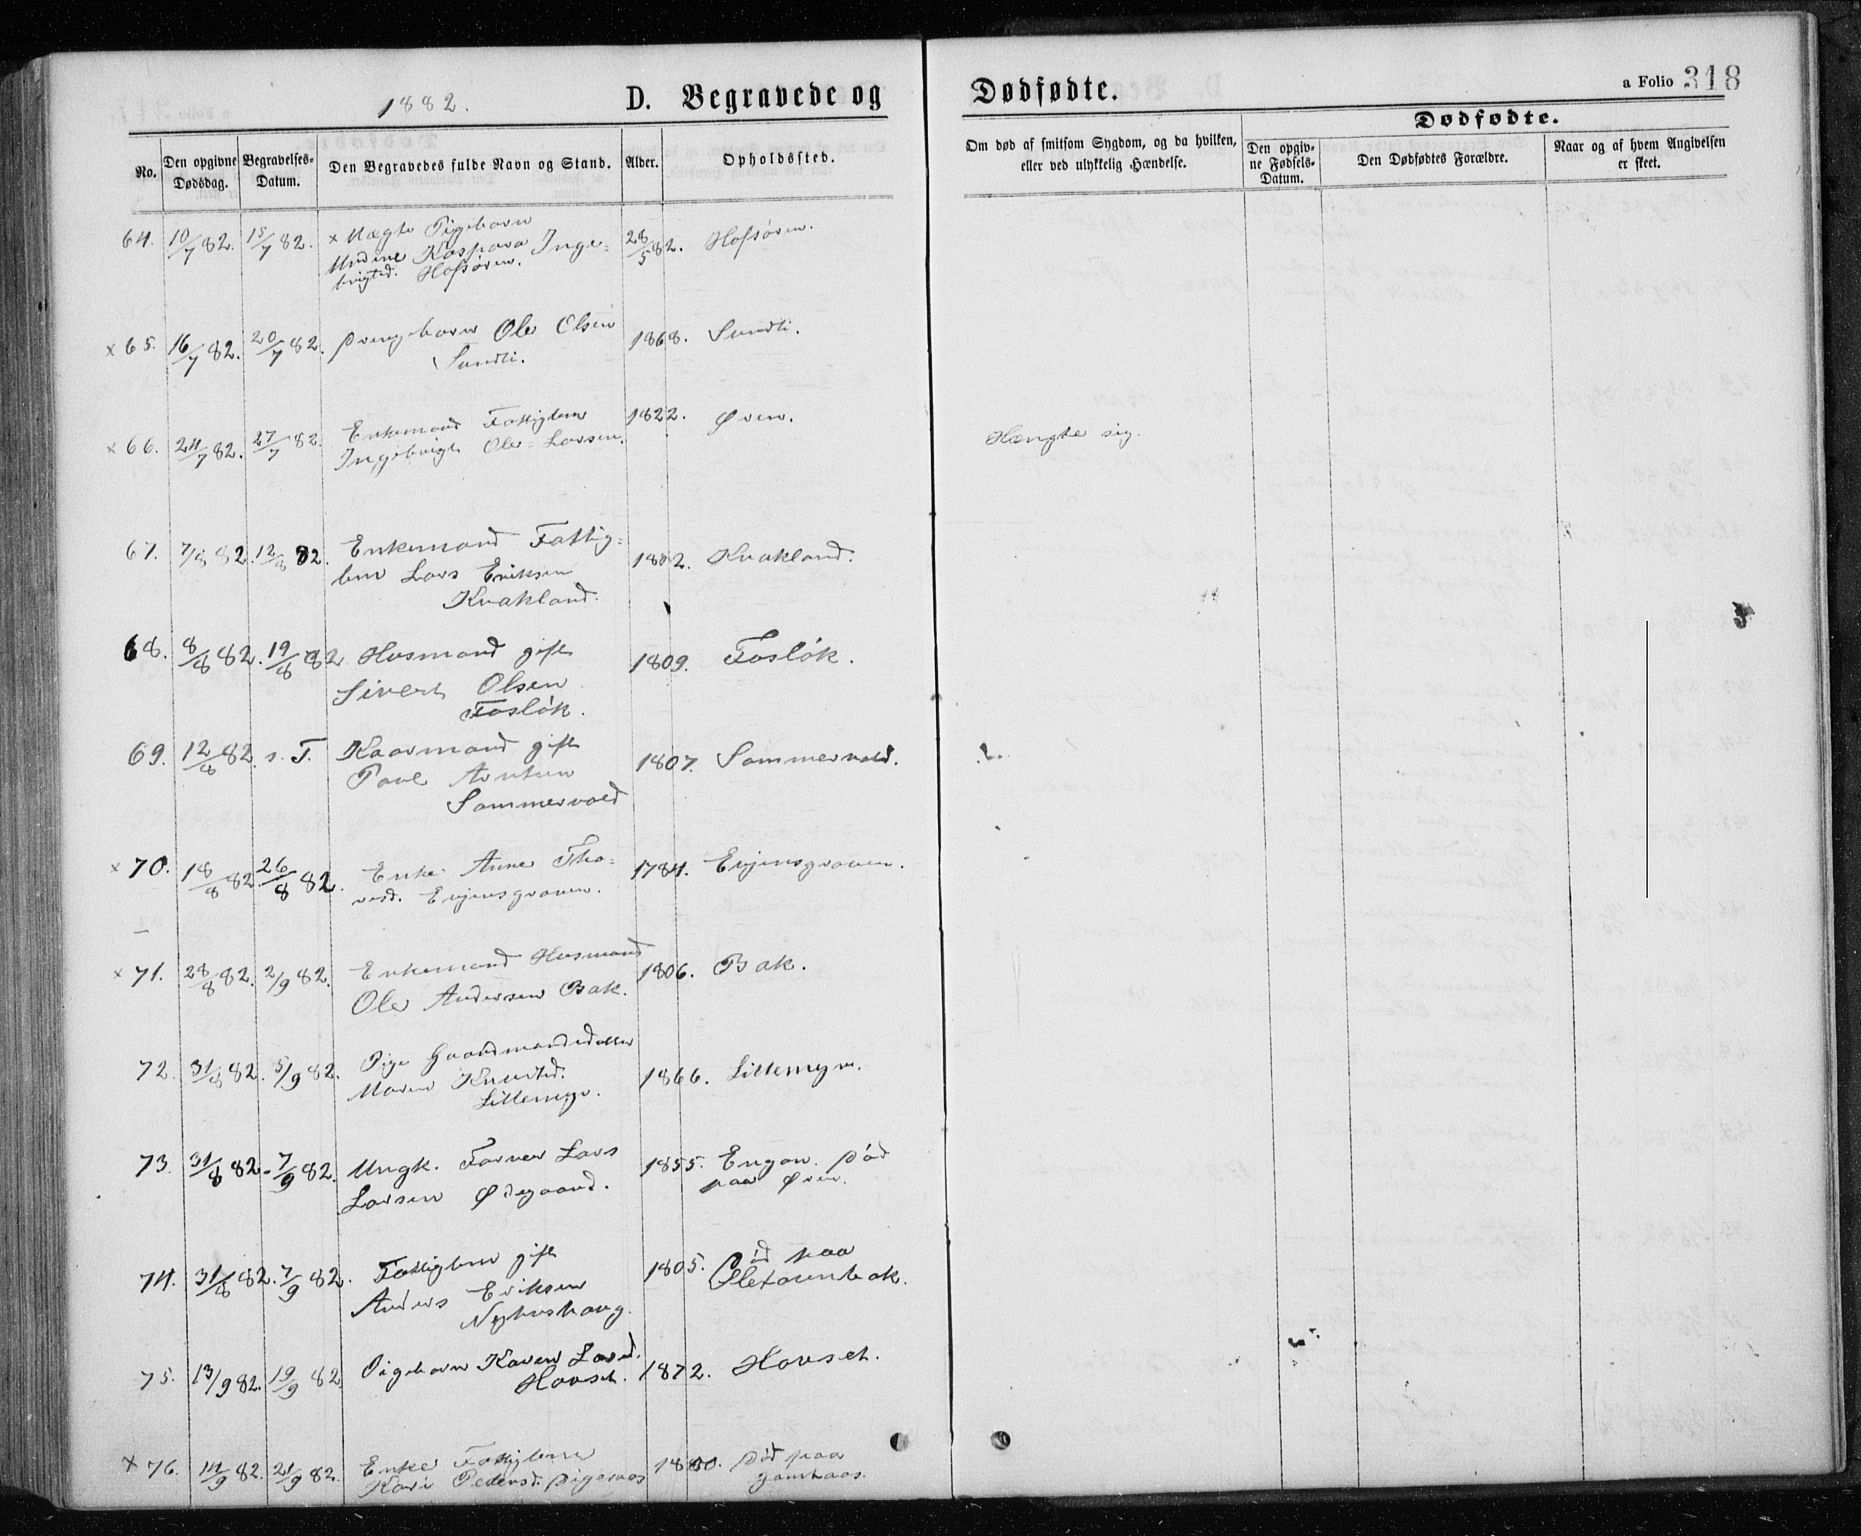 1882.
D. Begravede og
Dødfødte.
a Folio 318
No.
Den opgivne Dødsdag.
Begravelses-Datum.
Den Begravedes fulde Navn og Stand.
Alder.
Opholdssted.
Om død af smitsom Sygdom, og da hvilken, eller ved ulykkelig Hændelse.
Dødfødte.
Den opgivne Fødsels-Datum.
Den Dødfødtes Forældre.
Naar og af hvem Angivelsen er skeet.
64. 10/7 82. 15/7 82. x Uægte Pigebarn 28/5 82. Hofsøren.
Kaspara Inge=
brigtsd. Hofsøren.
x 65. 16/7 82. 20/7 82. Drengebarn Ole Olsen 1868. Sundli.
Sundli.
x 66. 24/7 82. 27/7 82. Enkemand Fattiglem 1822. Øren. Hængte sig.
Ingebrigt Ole= Larsen.
67. 7/8 82. 12/8 82. Enkemand Fattig= 1802. Kvakland.
lem Lars Eriksen
Kvakland.
68. 8/8 82. 19/8 82. Husmand gift 1809. Fosløk.
Sivert Olsen
Fosløk.
69. 12/8 82. s. T. Kaarmand gift 1807. Sommervold.
Paul Arntsen
Sommervold
x 70. 18/8 82. 26/8 82. Enke Anne Tho= 1784. Evjensgraven.
resd. Evjensgraven.
x 71. 28/8 82. 2/9 82. Enkemand Husmand 1806. Bak.
Ole Andersen Bak.
72. 31/8 82. 5/9 82. Pige Gaardmandsdatter 1866. Lillemyr.
Maren Knutsd.
Lillemyr.
73. 31/8 82. 7/9 82. Ungk. Farver Lars 1855. Engan. Død
Larsen Ødegaard. paa Øren.
74. 31/8 82. 7/9 82. Fattiglem gift 1805. Død paa
Anders Eriksen
Nyhushaug.
75. 13/9 82. 19/9 82. Pigebarn Karen Larsd. 1872. Hovset.
Hovset.
x 76. 14/9 82. 21/9 82. Enke Fattiglem 1800. Død paa
Kari Pedersd.